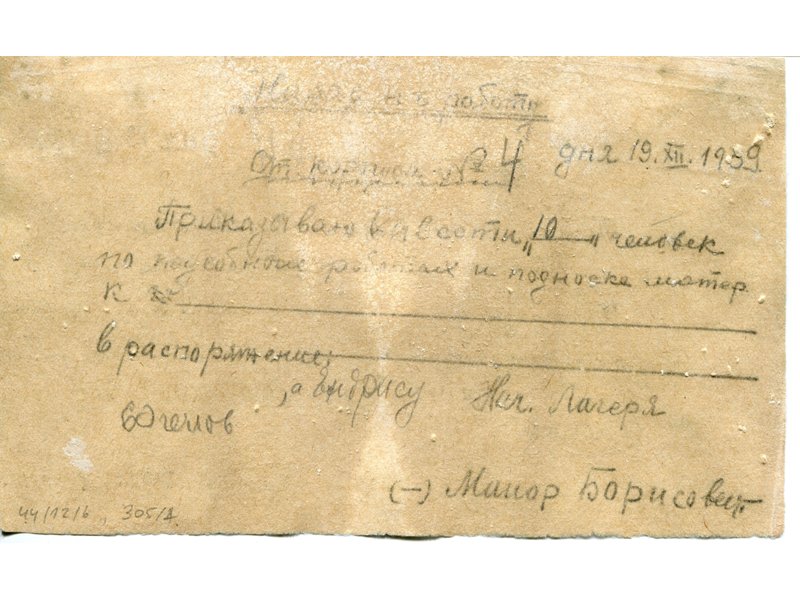 Наряд на работу
От корпуса № 4 дня 19.XII.1939
Приказываю вывести „10" человек
по подсобных работах и подноске матер.
к
в распоряжение:
, а Ендрису Нач. Лагеря
60 челов
(—) Маиор Борисовец
44/12/6 305/A